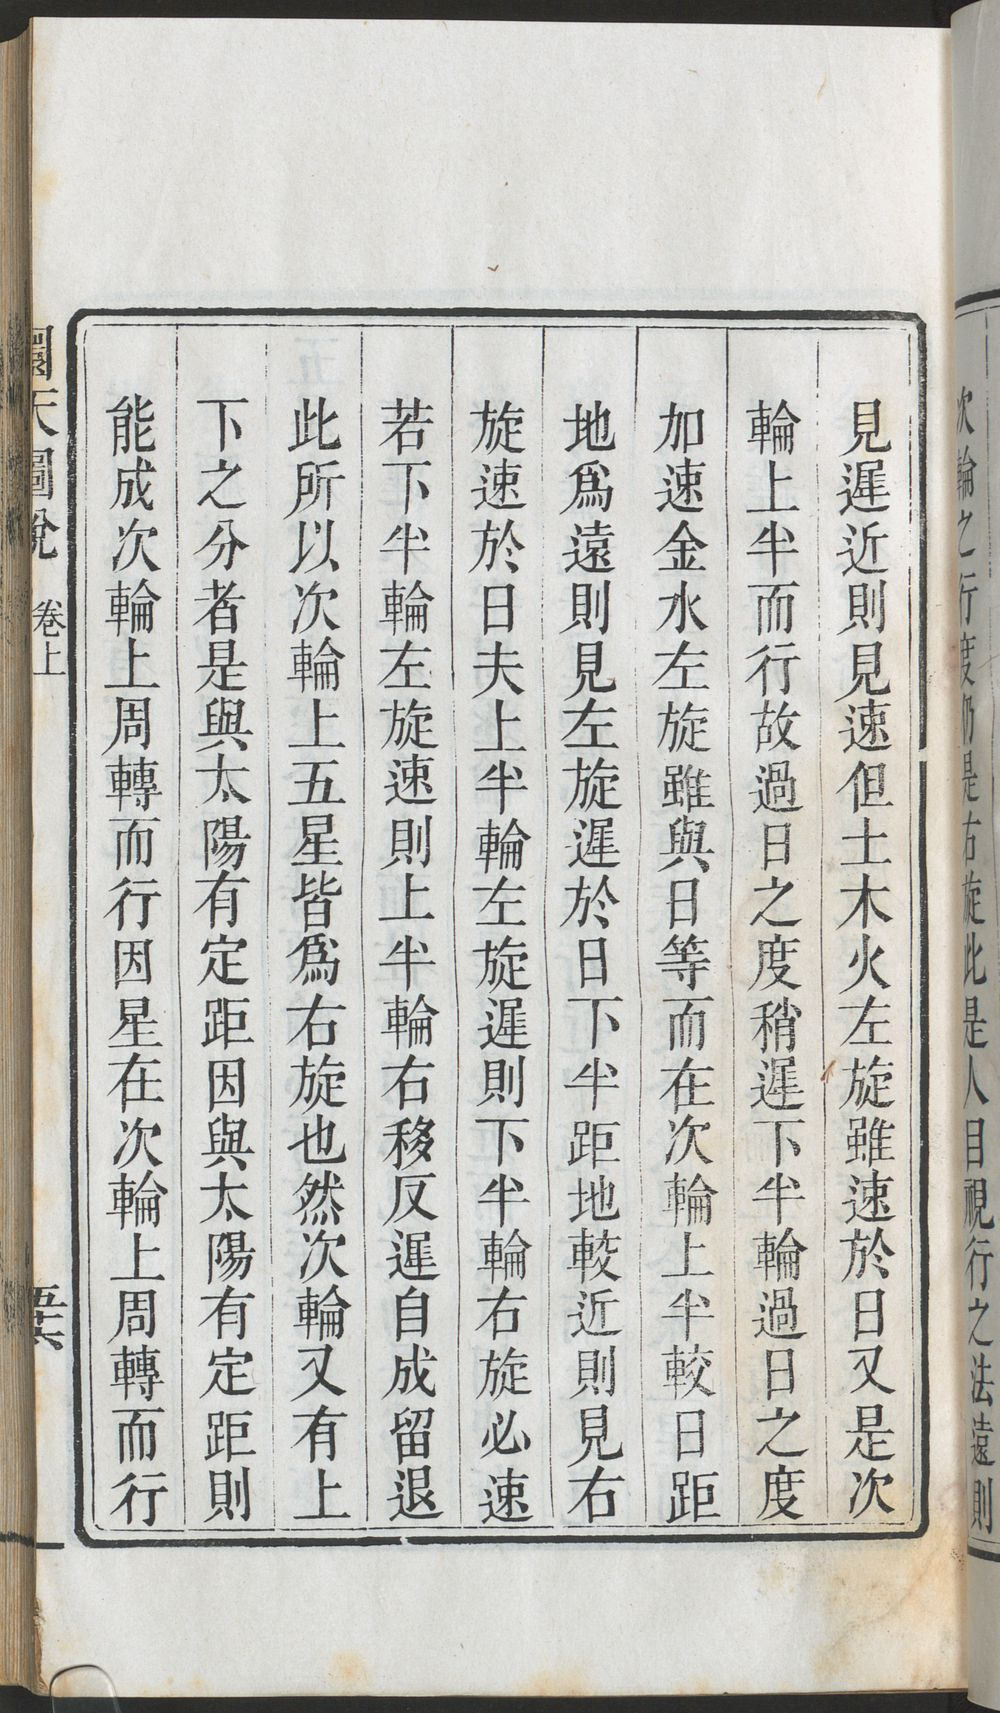 次輪之行度仍是右旋此是人目視行之法遠則
見遲近則見速但土木火左旋雖速於日又是次
輪上半而行故過日之度稍遲下半輪過日之度
加速金水左旋雖與日等而在次輪上半較日距
地爲遠則見左旋遲於日下半距地較近則見右
旋速於日夫上半輪左旋遲則下半輪右旋必速
若下半輪左旋速則上半輪右移反遲自成留退
此所以次輪上五星皆爲右旋也然次輪又有上
下之分者是與太陽有定距因與太陽有定距則
能成次輪上周轉而行因星在次輪上周轉而行
圜天圖說 卷上 五六